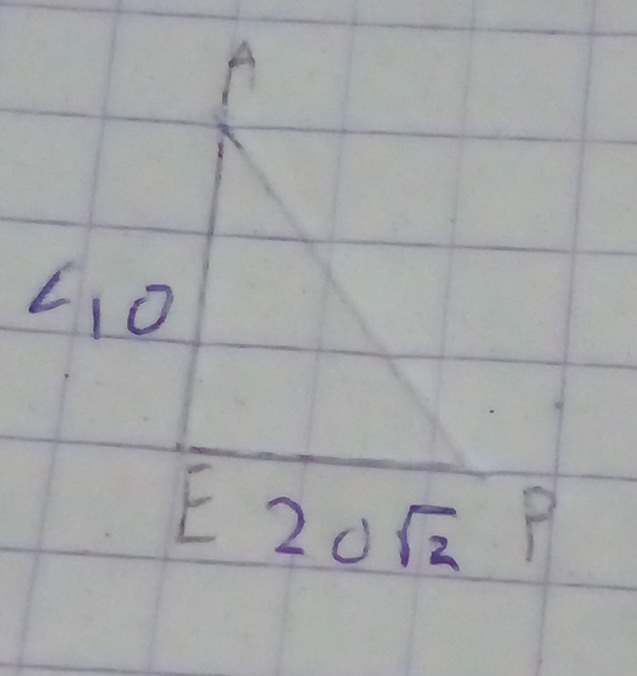 A
<10
E 20√2 P